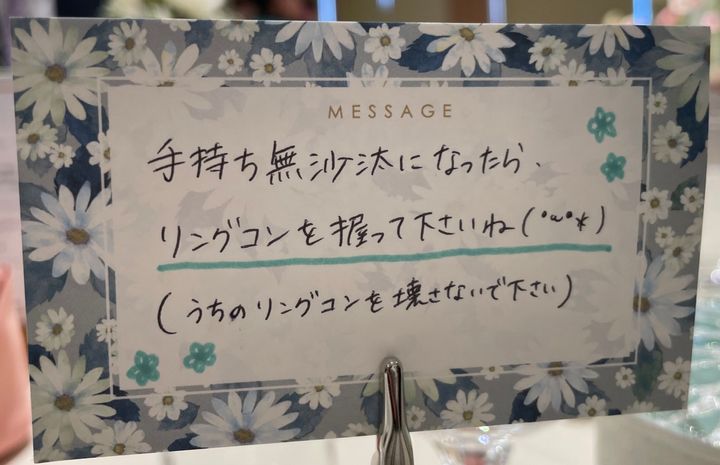 MESSAGE
手持ち無沙汰になったら、
リングコンを握って下さいね(°ω°*)
(うちのリングコンを壊さないで下さい)